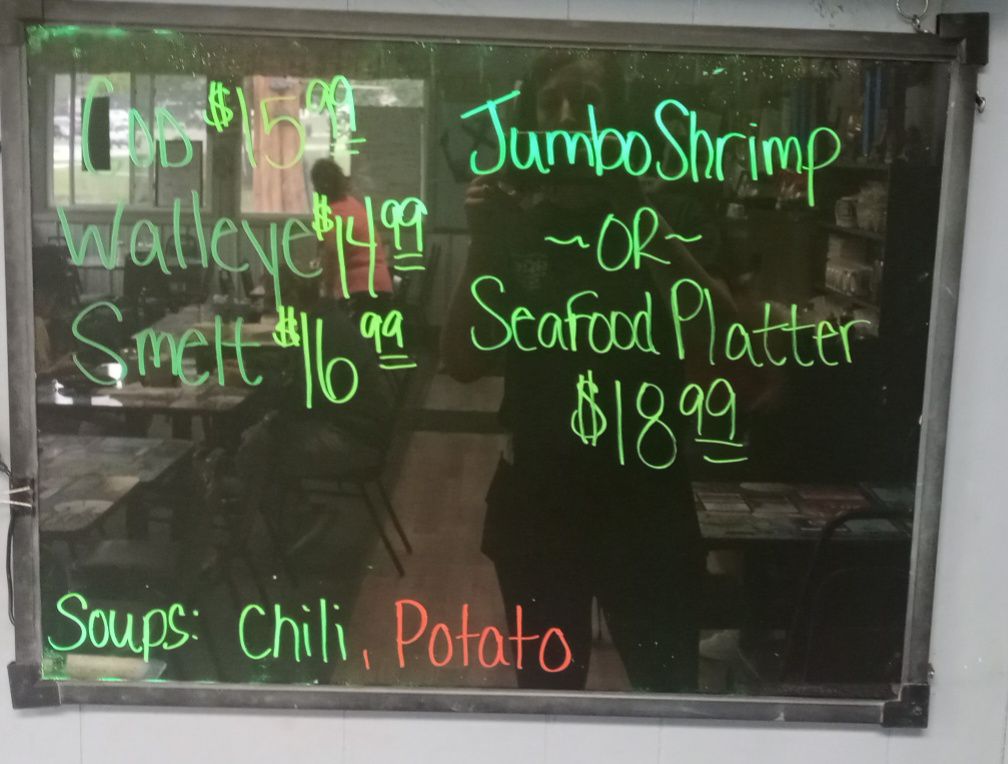 Cod $15.99
Walleye $14.99
Smelt $16.99
Jumbo Shrimp
~OR~
Seafood Platter
$18.99
Soups: Chili, Potato